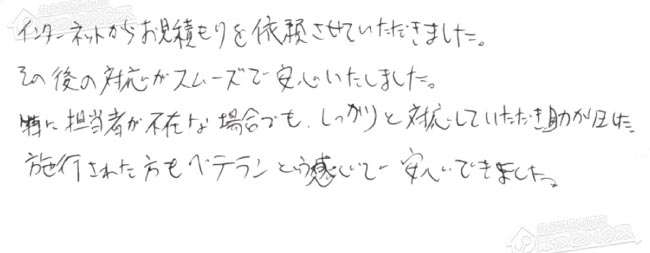 インターネットからお見積もりを依頼させていただきました。
その後の対応がスムーズで安心いたしました。
特に担当者が不在な場合でも、しっかりと対応していただき助かりました
施行された方もベテランという感じで安心できました。